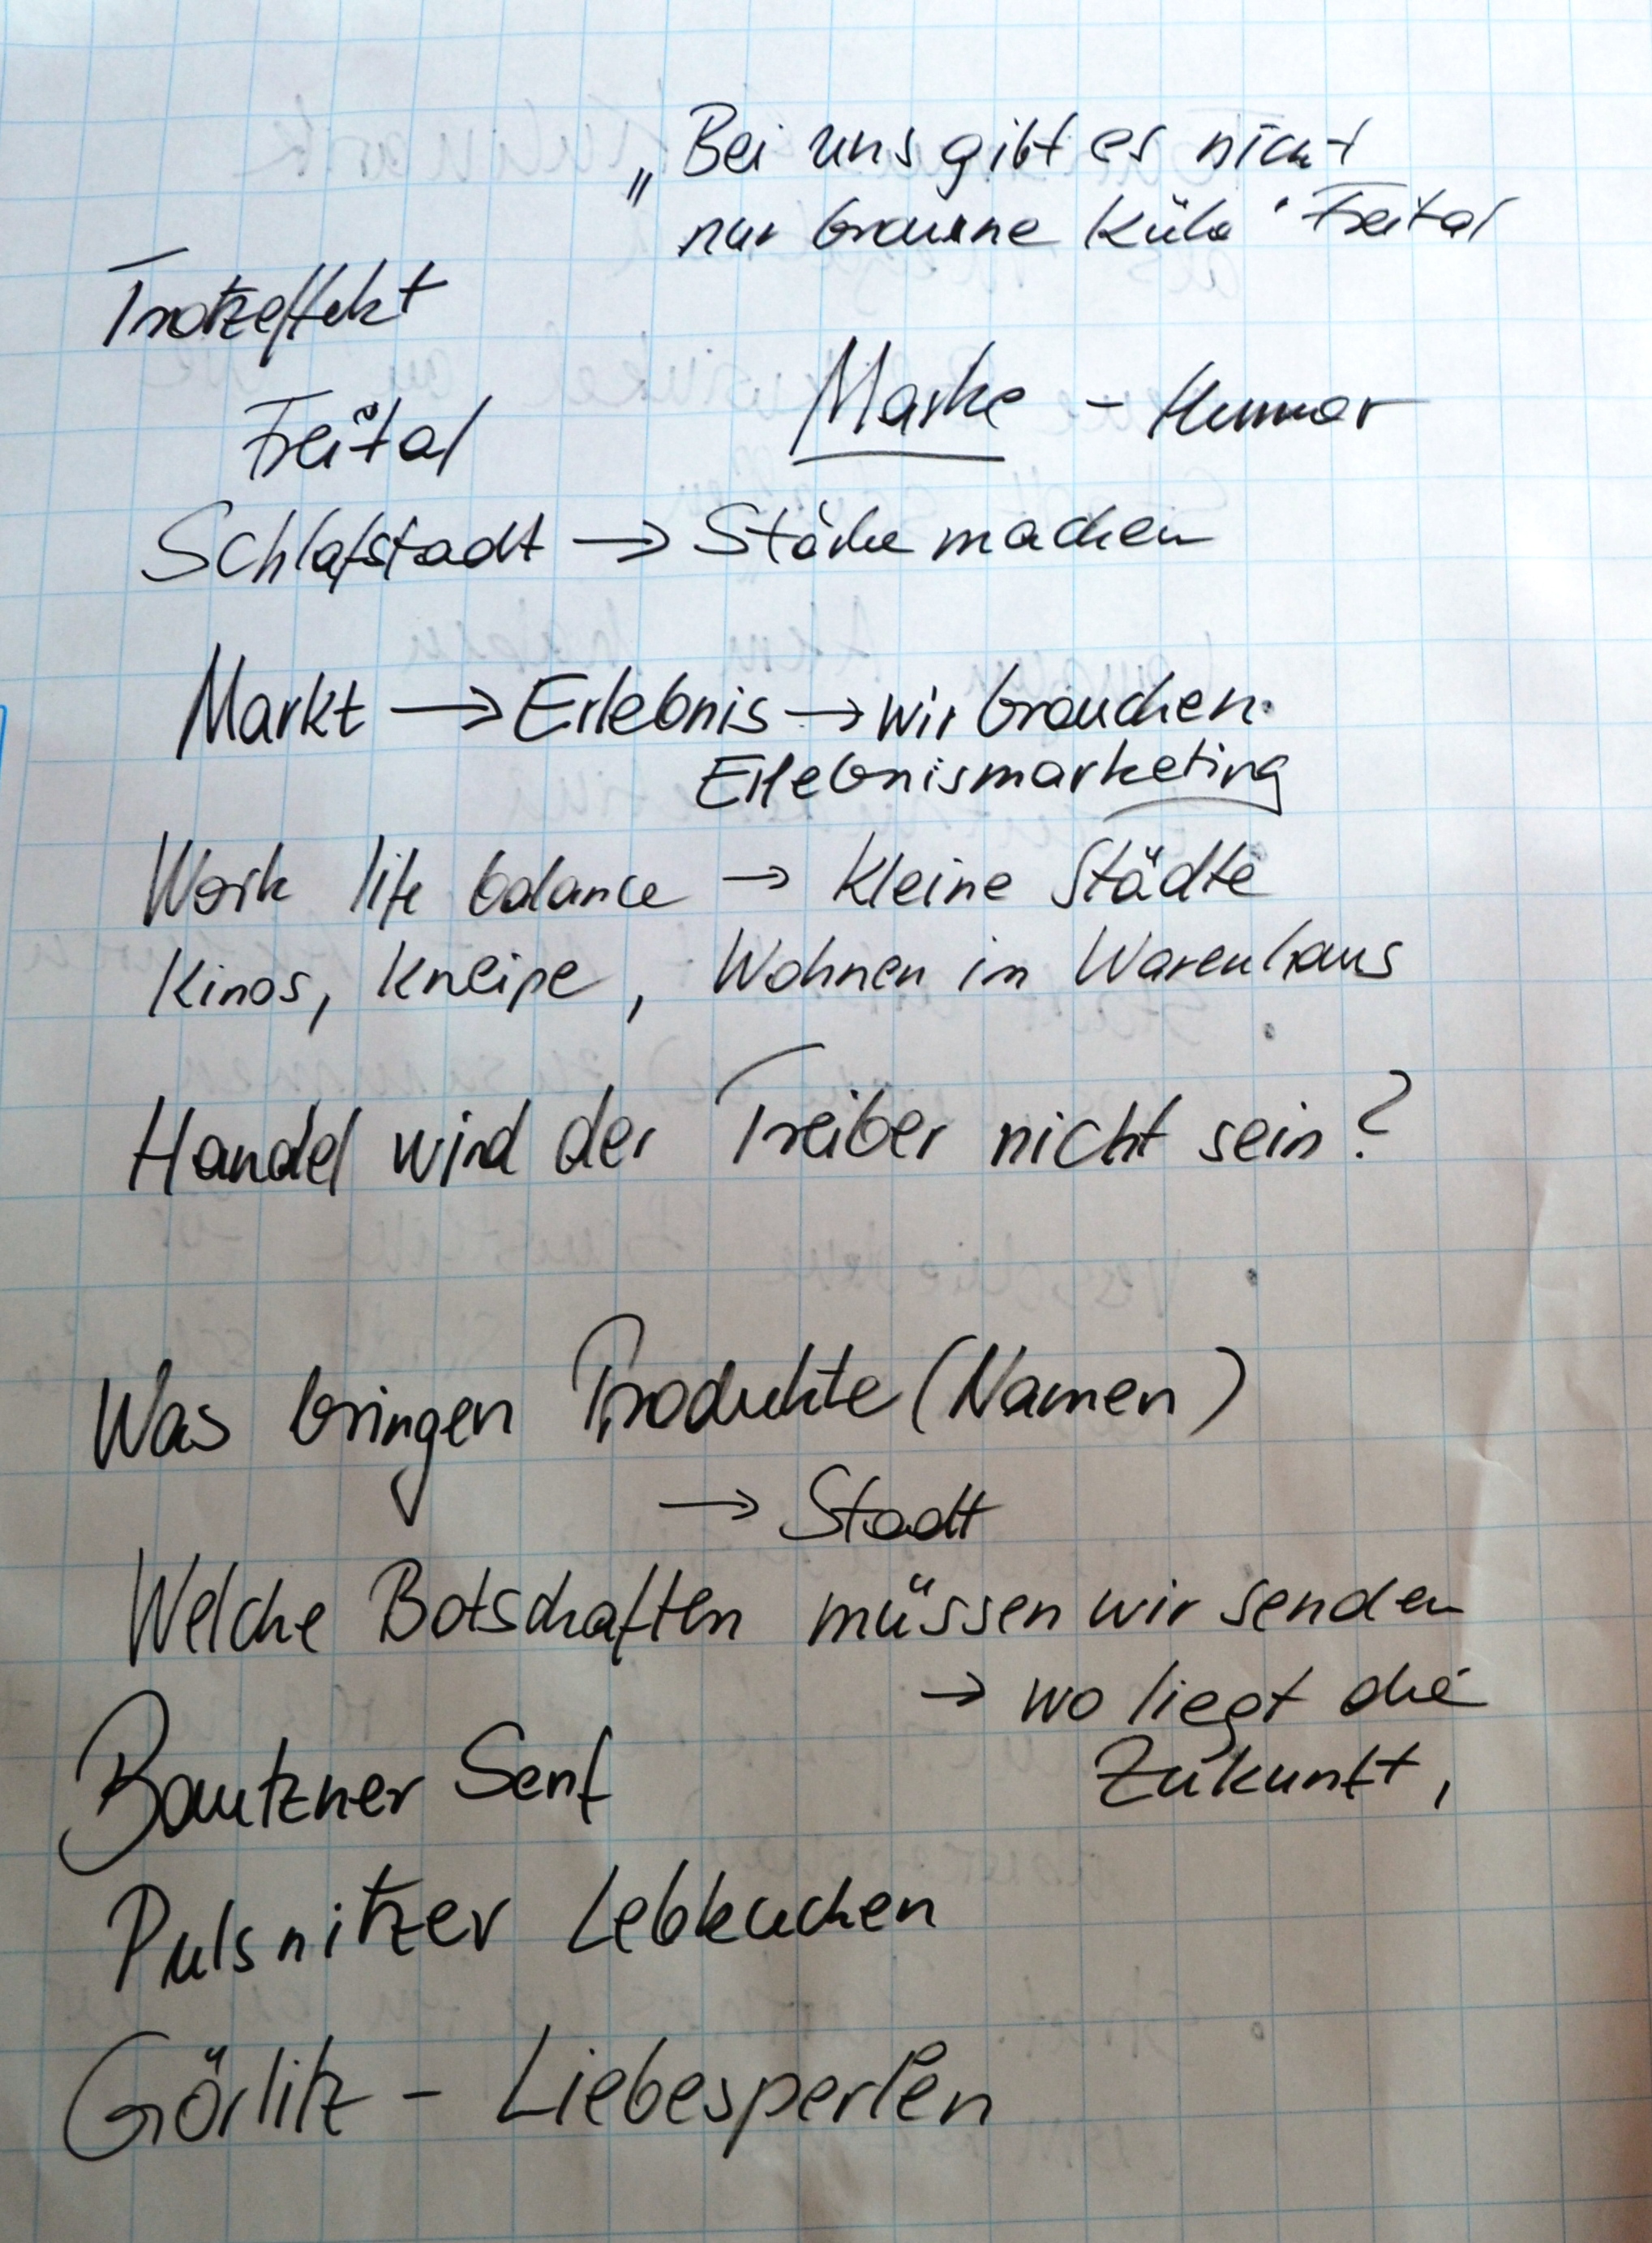 „Bei uns gibt es nicht
nur braune Kühe" Freital
Trotzeffekt
Marke - Humor
Freital
Schlafstadt → Stärke machen
Markt → Erlebnis → wir brauchen
Erlebnismarketing
Work life balance → Kleine Städte
Kinos, Kneipe, Wohnen im Warenhaus
Handel wird der Treiber nicht sein?
Was bringen Produkte (Namen)
→ Stadt
Welche Botschaften müssen wir senden
→ wo liegt die
Zukunft,
Bautzner Senf
Pulsnitzer Lebkuchen
Görlitz - Liebesperlen